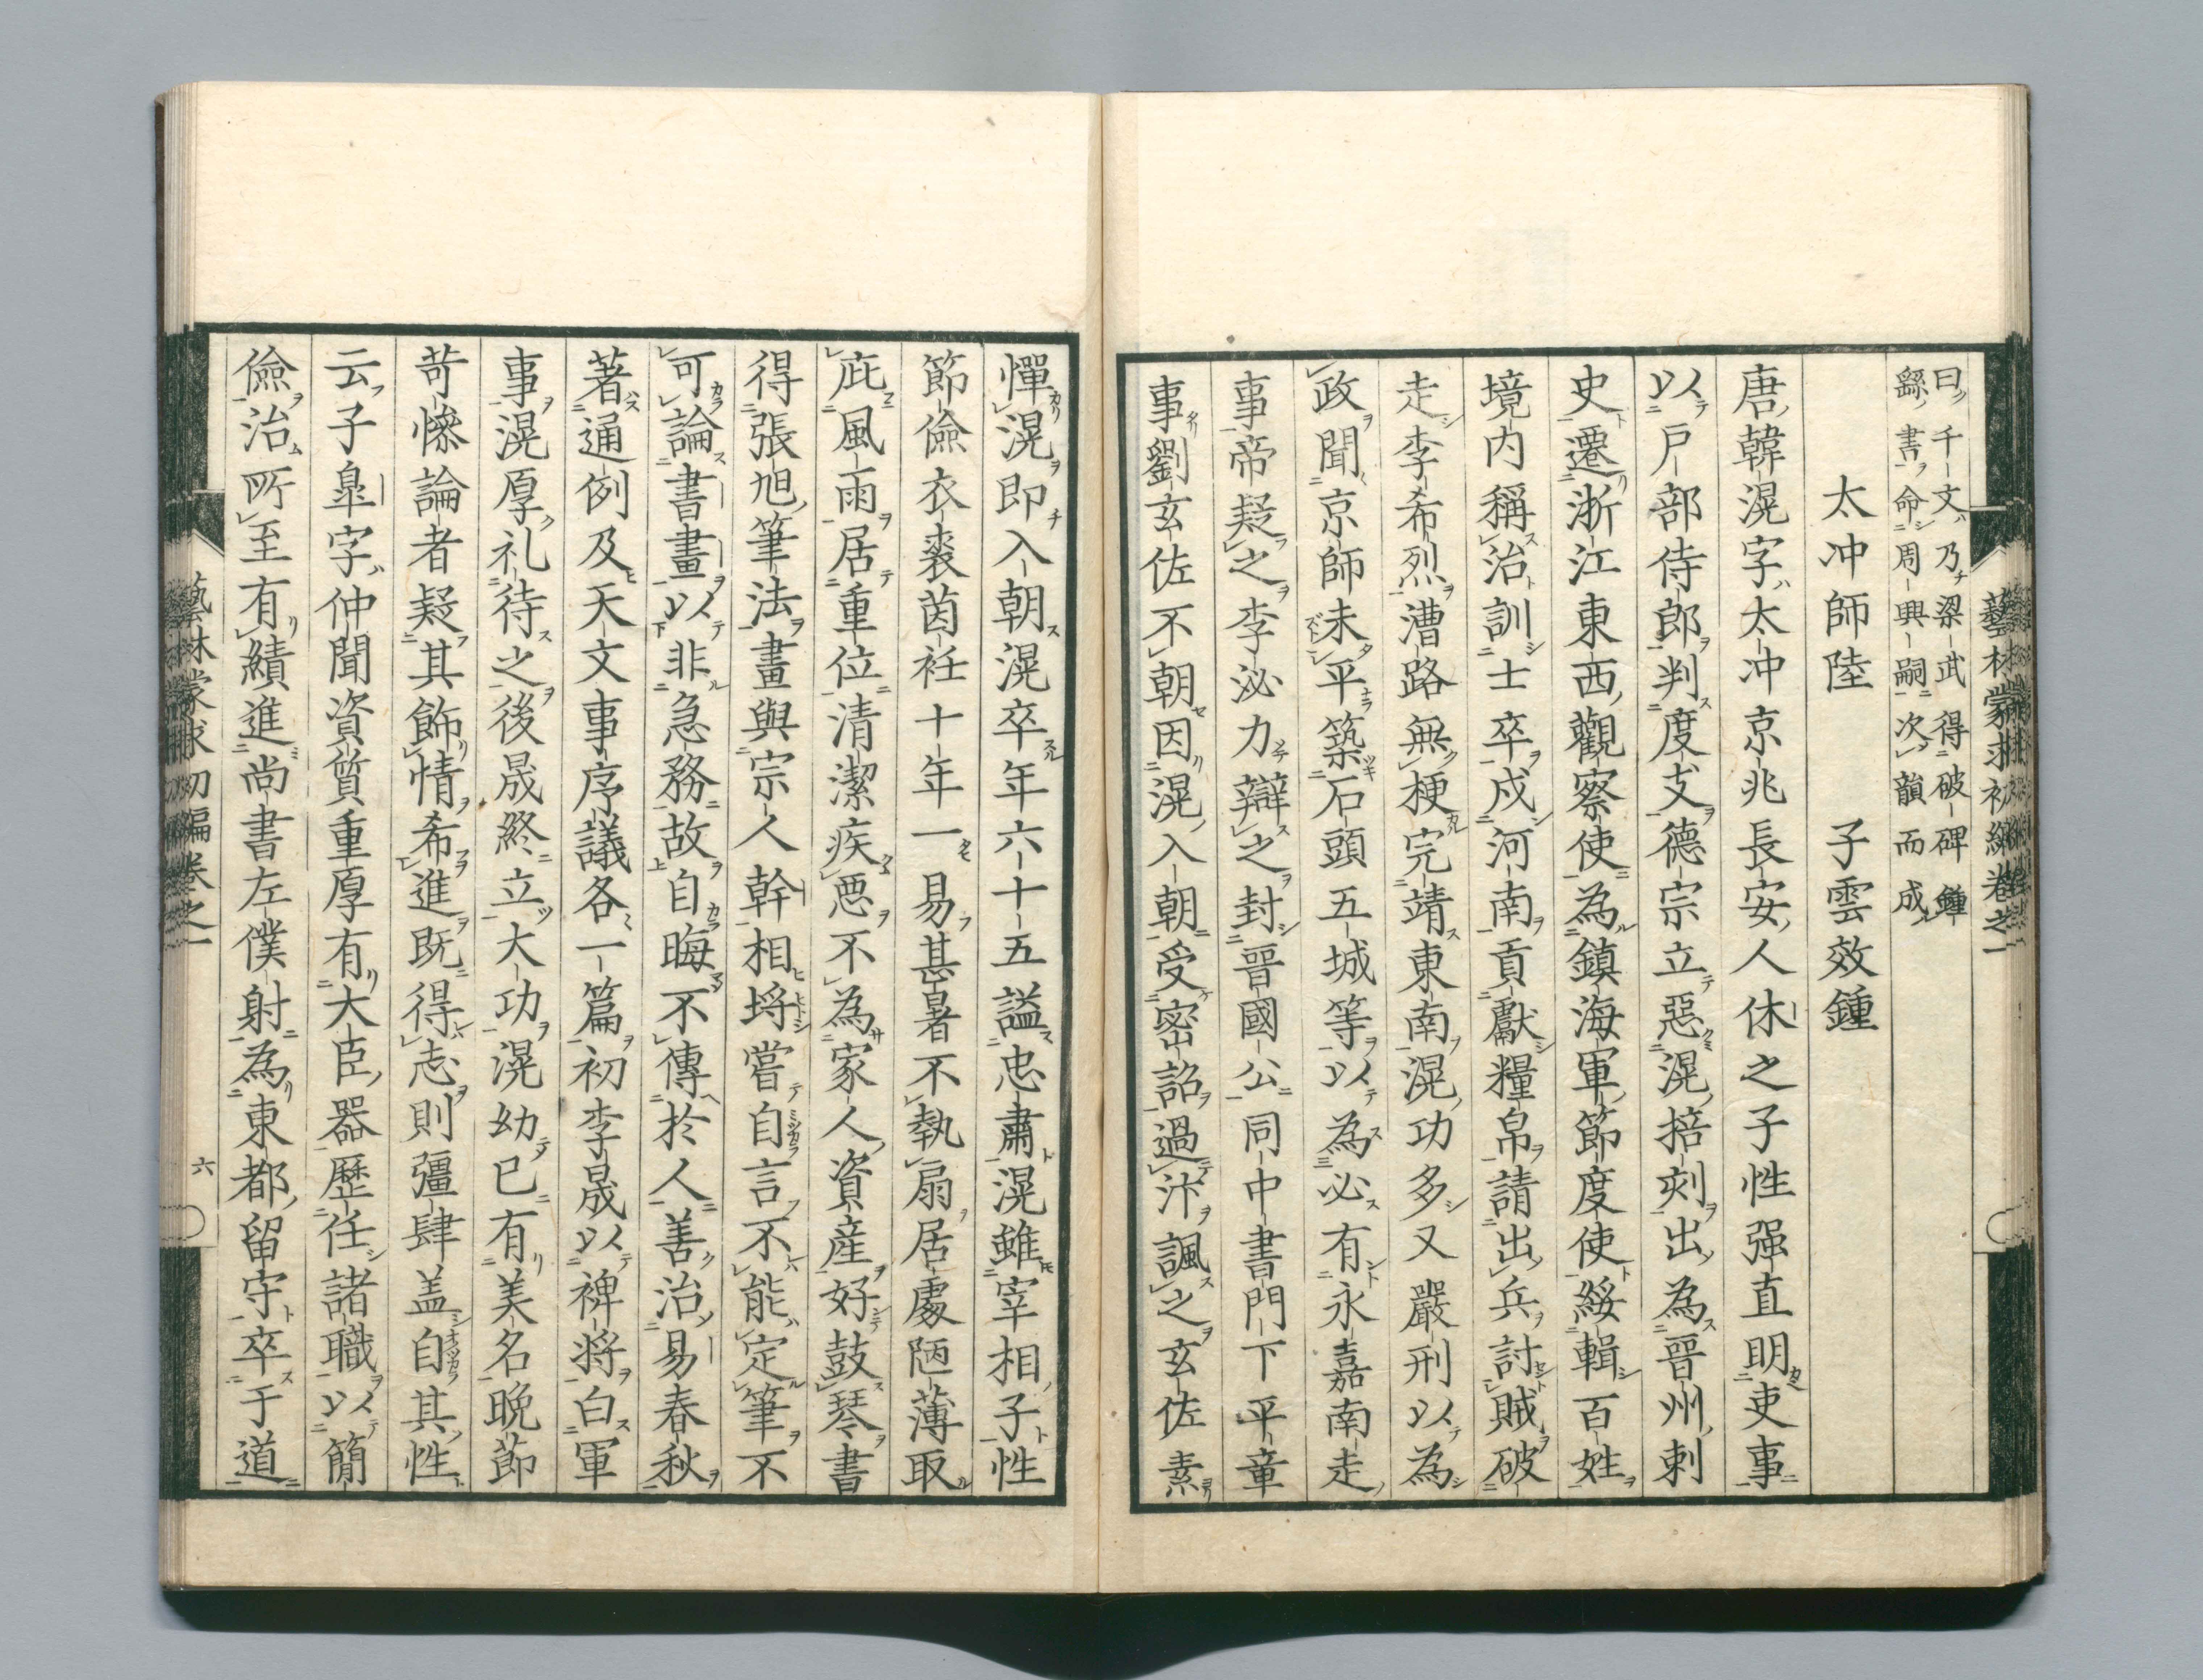 藝林蒙求初編卷之一
曰千文乃梁武得破碑鍾
繇書命周興嗣次韻而成
太冲師陸　子雲效鍾
唐韓滉字太冲京兆長安人休之子性强直明吏事
以戸部侍郎判度支德宗立惡滉掊刻出為晋州刺
史遷浙江東西觀察使為鎮海軍節度使綏輯百姓
境内稱治訓士卒戍河南貢獻糧帛請出兵討賊破
走李希烈漕路無梗完靖東南滉功多又嚴刑以為
政聞京師未平築石頭五城等以為必有永嘉南走
事帝疑之李泌力辯之封晋國公同中書門下平章
事劉玄佐不朝因滉入朝受密詔過汴諷之玄佐素
憚滉即入朝滉卒年六十五謚忠肅滉雖宰相子性
節儉衣裘茵衽十年一易甚暑不執扇居處陋薄取
庇風雨居重位清潔疾悪不為家人資産好鼓琴書
得張旭筆法畫與宗人幹相埒嘗自言不能定筆不
可論書畫以非急務故自晦不傳於人善治易春秋
著通例及天文事序議各一篇初李晟以裨将白軍
事滉厚礼待之後晟終立大功滉幼已有美名晩節
苛慘論者疑其飾情希進既得志則彊肆盖自其性
云子皐字仲聞資質重厚有大臣器歷任諸職以簡
儉治所至有績進尚書左僕射為東都留守卒于道
藝林蒙求初編卷之一
六